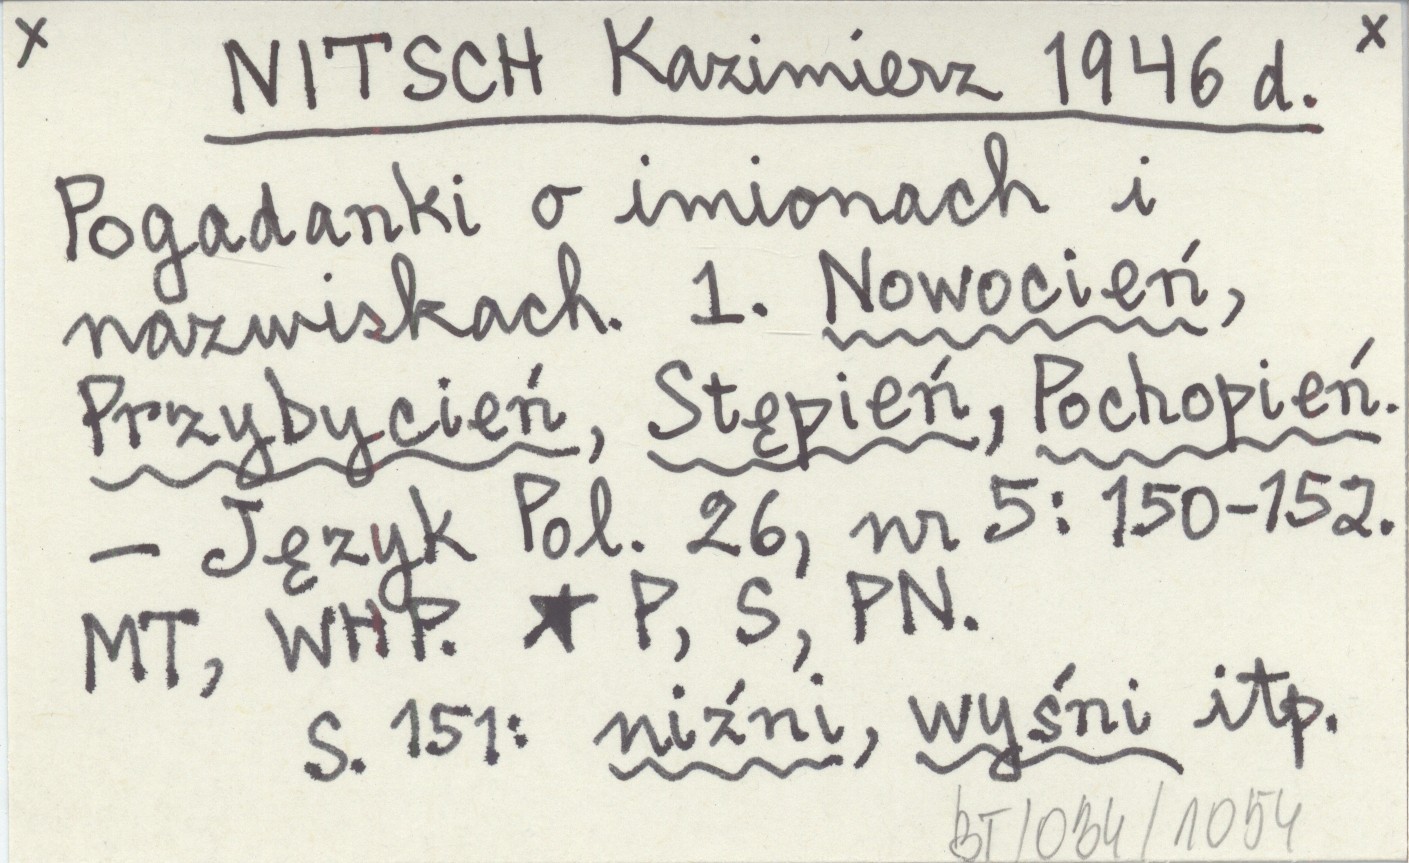 x NITSCH Kazimierz 1946 d. x
Pogadanki o imionach i
nazwiskach. 1. Nowocień,
Przybycień, Stępień, Pochopień.
— Język Pol. 26, nr 5: 150-152.
MT, WHP. ★ P, S, PN.
S. 151: niźni, wyśni itp.
BT/034/1054